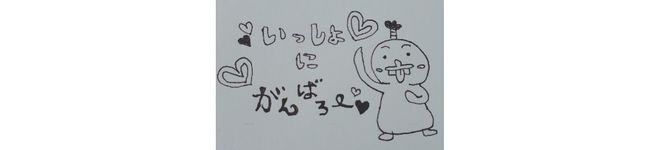 いっしょ
に
がんばろー